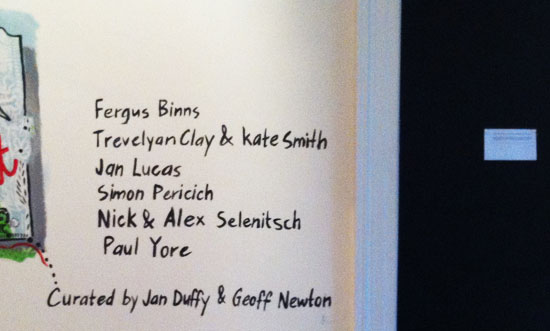 Fergus Binns
Trevelyan Clay & Kate Smith
Jan Lucas
Simon Pericich
Nick & Alex Selenitsch
Paul Yore
Curated by Jan Duffy & Geoff Newton